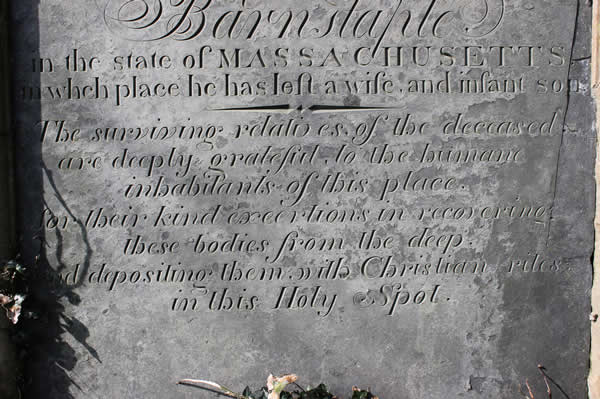 Barnstaple
in the state of MASSACHUSETTS
in whch place he has left a wife, and infant son.
The surviving relatives, of the deceased
are deeply grateful, to the humane
inhabitants of this place.
for their kind exertions in recovering
these bodies from the deep.
and depositing them, with Christian rites,
in this Holy Spot.